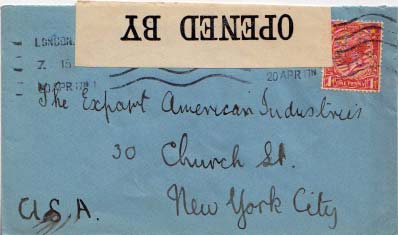 OPENED BY
LONDON
7. 15
20 APR 17
20 APR 17
ONE PENNY
The Export American Industries
30 Church St.
New York City
U.S.A.